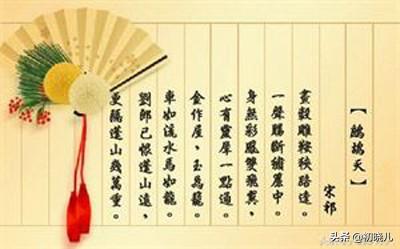 【鷓鴣天】
宋祁
畫轂雕鞍狹路逢。
一聲腸斷繡簾中。
身無彩鳳雙飛翼，
心有靈犀一點通。
金作屋，玉為籠。
車如流水馬如龍。
劉郎已恨蓬山遠，
更隔蓬山幾萬重。
头条 @初晓儿